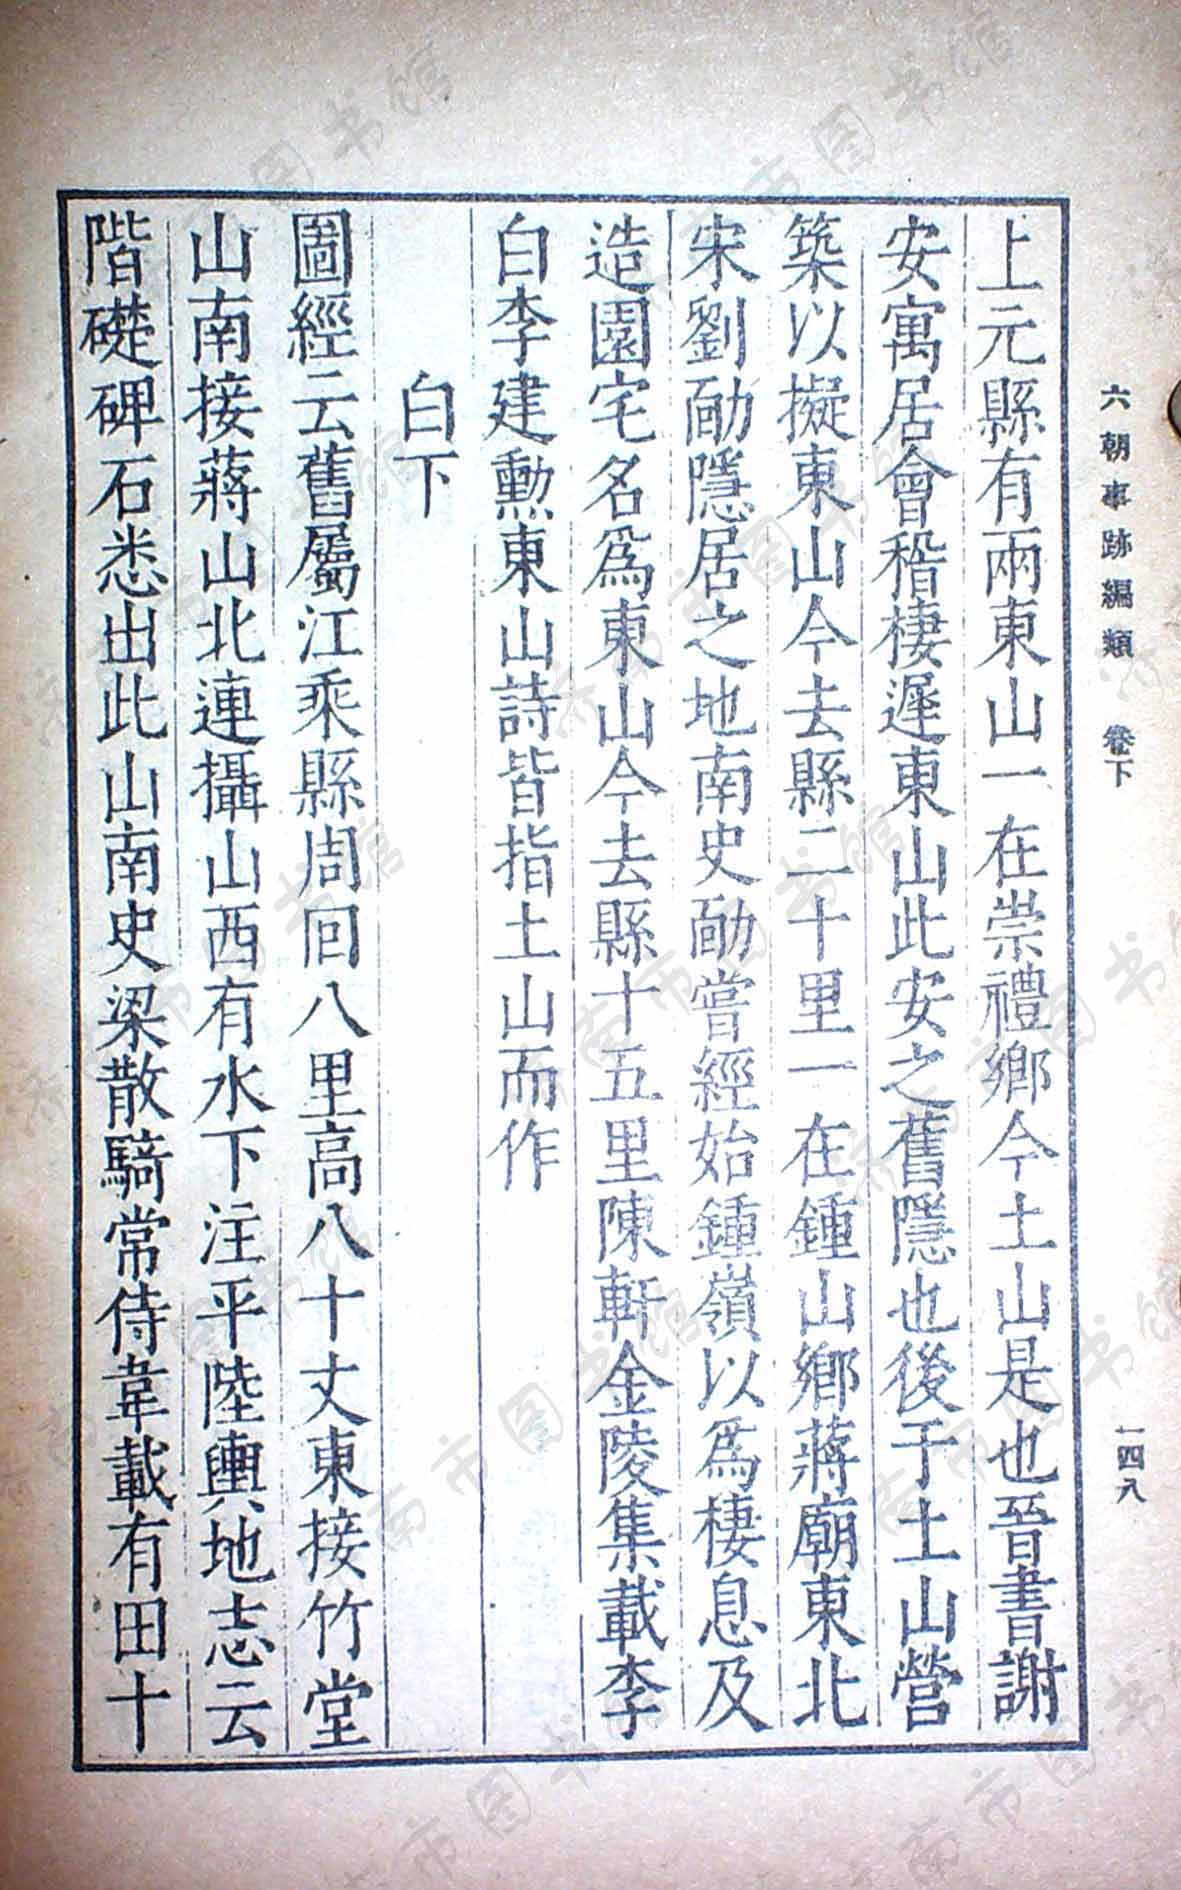 六朝事跡編類　卷下　一四八
上元縣有兩東山一在崇禮鄉今土山是也晉書謝
安寓居會稽棲遲東山此安之舊隱也後于土山營
築以擬東山今去縣二十里一在鍾山鄉蔣廟東北
宋劉勔隱居之地南史勔嘗經始鍾嶺以爲棲息及
造園宅名爲東山今去縣十五里陳軒金陵集載李
白李建勳東山詩皆指土山而作
白下
圖經云舊屬江乘縣周回八里高八十丈東接竹堂
山南接蔣山北連攝山西有水下注平陸輿地志云
階礎碑石悉出此山南史梁散騎常侍韋載有田十
济南市图书馆